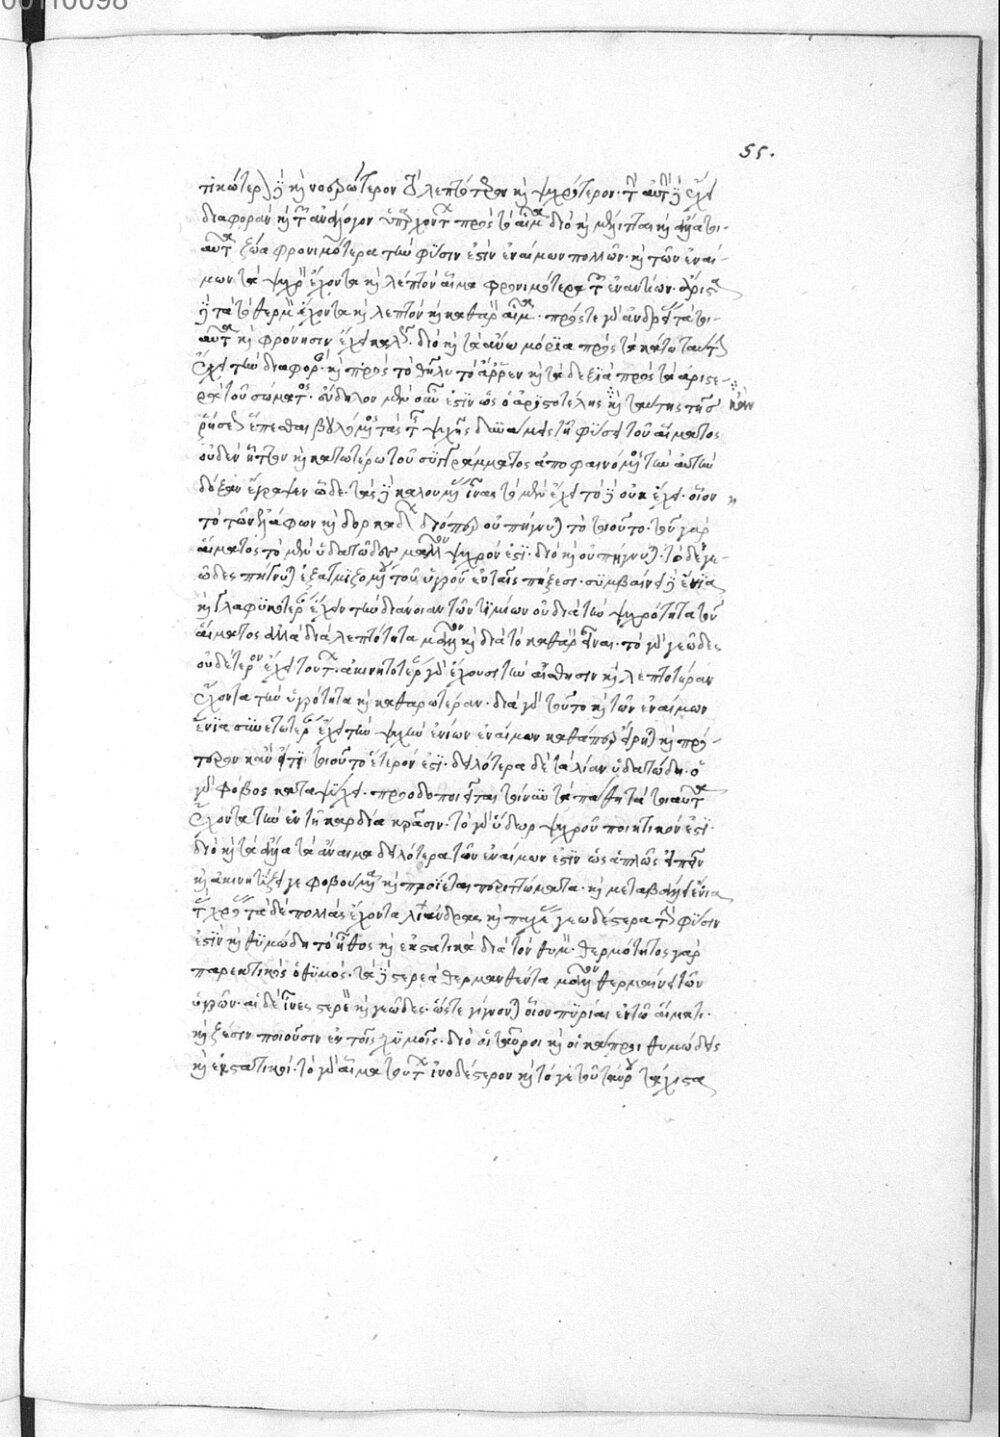 55.
τικώτερον δὲ καὶ νοερώτερον τὸ λεπτότερον καὶ ψυχρότερον. τὴν αὐτὴν δὲ ἔχει
διαφορὰν καὶ τῶν ἀνάλογον ὑπαρχόντων πρὸς τὸ αἷμα διὸ καὶ μέλιτται καὶ ἄλλα τοι-
αῦτα ζῶα φρονιμώτερα τὴν φύσιν ἐστὶν ἐναίμων πολλῶν. καὶ τῶν ἐναί-
μων τὰ ψυχρὸν ἔχοντα καὶ λεπτὸν αἷμα φρονιμώτερα τῶν ἐναντίων. ἄριστα
δὲ τὰ τὸ θερμὸν ἔχοντα καὶ λεπτὸν καὶ καθαρὸν αἷμα. πρός τε γὰρ ἀνδρείαν τὰ τοι-
αῦτα καὶ φρόνησιν ἔχει καλῶς. διὸ καὶ τὰ ἄνω μόρια πρὸς τὰ κάτω ταύτην
ἔχει τὴν διαφοράν. καὶ πρὸς τὸ θῆλυ τὸ ἄρρεν καὶ τὰ δεξιὰ πρὸς τὰ ἀριστε-
ρὰ τοῦ σώματος. εὔδηλον μὲν οὖν ἐστὶν ὡς ὁ ἀριστοτέλης καὶ ταύτης τῆς
ῥήσεως ἕπεσθαι βουλόμενος τὰς τῆς ψυχῆς δυνάμεις τῇ φύσει τοῦ αἵματος
οὐδὲν ἧττον καὶ κατωτέρω τοῦ συγγράμματος ἀποφαινόμενος τὴν αὐτὴν
δόξαν ἔγραψεν ὧδε. τὰς δὲ καλουμένας ἶνας τὸ μὲν ἔχει τὸ δὲ οὐκ ἔχει. οἷον
τὸ τῶν ἐλάφων καὶ δορκάδων διόπερ οὐ πήγνυται τὸ τοιοῦτο. τοῦ γὰρ
αἵματος τὸ μὲν ὑδατῶδες μᾶλλον ψυχρόν ἐστι. διὸ καὶ οὐ πήγνυται. τὸ δὲ γε-
ῶδες πήγνυται ἐξατμιζομένου τοῦ ὑγροῦ ἐν ταῖς πήξεσι. συμβαίνει δὲ ἔνια
καὶ γλαφυρωτέραν ἔχειν τὴν διάνοιαν τῶν τιμίων οὐ διὰ τὴν ψυχρότητα τοῦ
αἵματος ἀλλὰ διὰ λεπτότητα μᾶλλον καὶ διὰ τὸ καθαρὸν εἶναι. τὸ γὰρ γεῶδες
οὐδέτερον ἔχει τούτων. εὐκινητοτέραν γὰρ ἔχουσι τὴν αἴσθησιν καὶ λεπτοτέραν
ἔχοντα τὴν ὑγρότητα καὶ καθαρωτέραν. διὰ γὰρ τοῦτο καὶ τῶν ἐναίμων
ἔνια συνετωτέραν ἔχει τὴν ψυχὴν ἐνίων ἐναίμων καθάπερ εἴρηται καὶ πρό-
τερον κἂν εἴ τι τοιοῦτο ἕτερόν ἐστι. δειλότερα δὲ τὰ λίαν ὑδατώδη. ὁ
γὰρ φόβος καταψύχει. προοδοποιεῖται τοίνυν τὰ παθήματα τοιαῦτα
ἔχοντα τὴν ἐν τῇ καρδία κρᾶσιν. τὸ γὰρ ὕδωρ ψυχροῦ ποιητικόν ἐστι.
διὸ καὶ τὰ ἄλλα τὰ ἄναιμα δειλότερα τῶν ἐναίμων ἐστὶν ὡς ἁπλῶς εἰπεῖν
καὶ ἀκινητίζει γε φοβούμενα καὶ προΐεται περιττώματα. καὶ μεταβάλλει ἔνια
τὰς χρόας τὰ δὲ πολλὰς ἔχοντα λίαν ἶνας καὶ παχείας γεωδέστερα τὴν φύσιν
ἐστὶν καὶ θυμώδη τὸ ἦθος καὶ ἐκστατικὰ διὰ τὸν θυμόν. θερμότητος γὰρ
παρεκτικὸς ὁ θυμός. τὰ δὲ στερεὰ θερμανθέντα μᾶλλον θερμαίνει τῶν
ὑγρῶν. αἱ δὲ ἶνες στερεὸν καὶ γεῶδες. ὥστε γίνονται οἷον πυρίαι ἐν τῷ αἵματι.
καὶ ζέσιν ποιοῦσιν ἐν τοῖς θυμοῖς. διὸ οἱ ταῦροι καὶ οἱ κάπροι θυμώδεις
καὶ ἐκστατικοί. τὸ γὰρ αἷμα τούτων ἰνωδέστερον καὶ τό γε τοῦ ταύρου τάχιστα